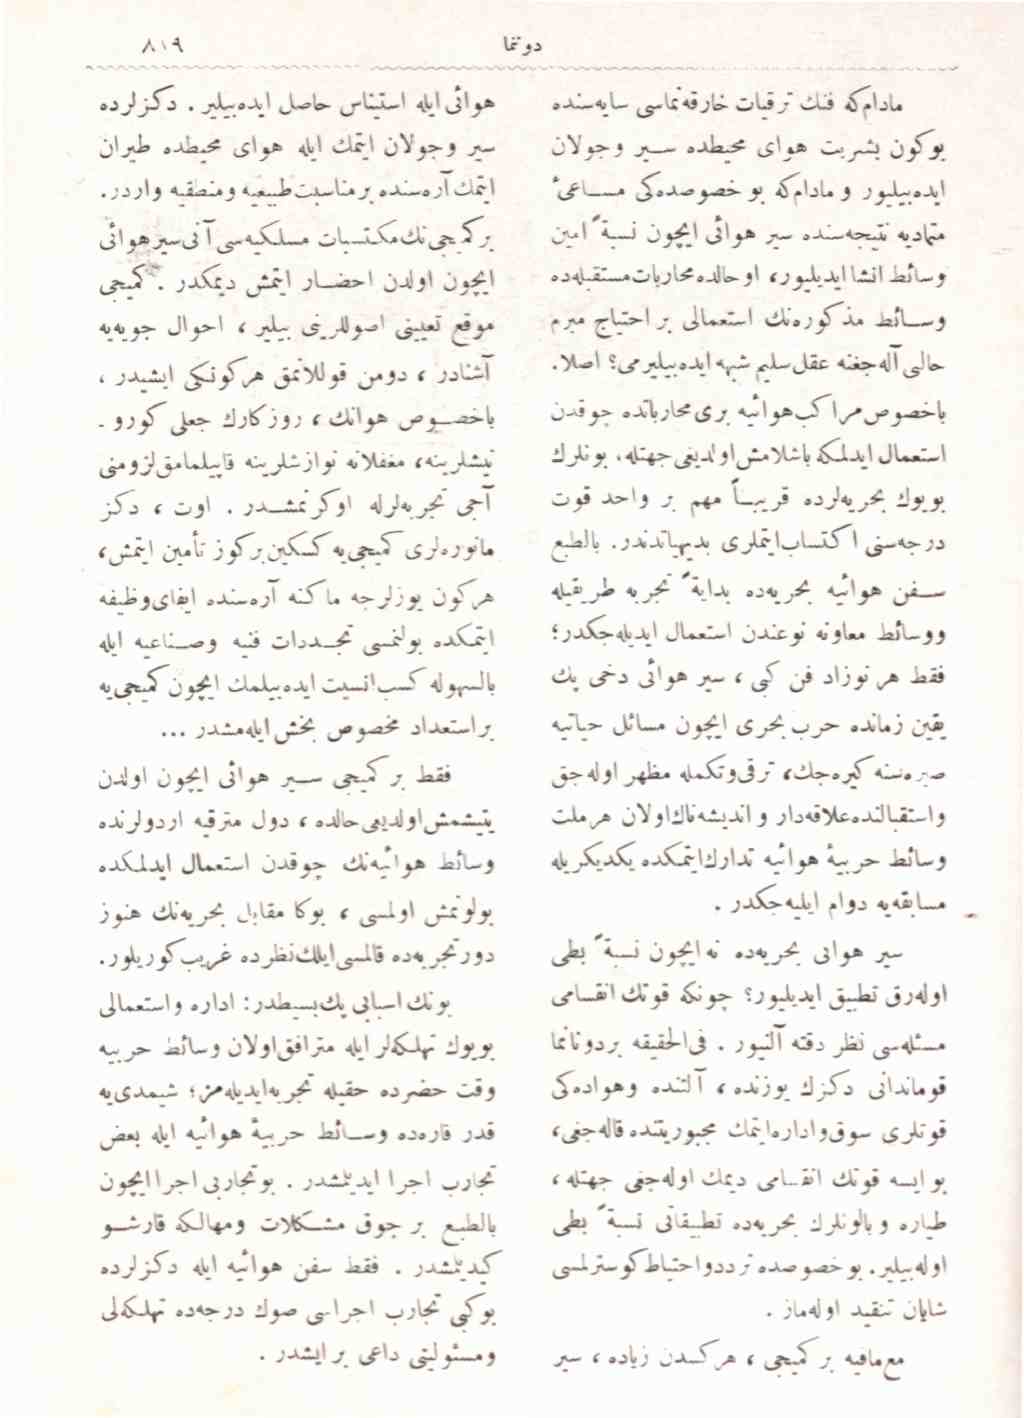 دوننما
٨١٩
مادام‌كه فنك ترقيات خارقه‌نماسى سايه‌سنده
بوكون بشريت هواى محيطده سـير وجولان
ايده‌بيليور و مادام‌كه بو خصوصده‌كى مساعئ
متماديه نتيجه‌سنده سير هوائى ايچون نسبةً امين
وسائط انشا ايديليور، او حالده محاربات مستقبله‌ده
وسـائط مذكوره‌نك استعمالى بر احتياج مبرم
حالى آله‌جغنه عقل سليم شبهه ايده‌بيلير مى؟ اصلا.
باخصوص مراكب هوائيه برى محارباتده چوقدن
استعمال ايدلمكه باشلامش اولديغى جهتله، بونلرك
بويوك بحريه‌لرده قريبـاً مهم بر واحد قوت
درجه‌سنى اكتساب ايتملرى بديهياتدندر. بالطبع
سـفن هوائيه بحريه‌ده بدايةً تجربه طريقيله
ووسائط معاونه نوعندن استعمال ايديله‌جكدر؛
فقط هر نوزاد فن كبى، سير هوائى دخى پك
يقين زمانده حرب بحرى ايچون مسائل حياتيه
صره‌سنه كيره‌جك، ترقى وتكمله مظهر اوله‌جق
واستقبالنده علاقه‌دار و انديشه‌ناك اولان هر ملت
وسائط حربيۀ هوائيه تدارك ايتمكده يكديكريله
مسابقه‌يه دوام ايليه‌جكدر .
سير هوائى بحريه‌ده نه ايچون نسبةً بطى
اوله‌رق تطبيق ايديليور؟ چونكه قوتك انقسامى
مسئله‌سى نظر دقته آلنيور . فى‌الحقيقه بر دوناننما
قوماندانى دكزك يوزنده ، آلتنده وهواده‌كى
قوتلرى سوق واداره ايتمك مجبوريتنده قاله‌جغى،
بو ايسه قوتك انقسامى ديمك اوله‌جغى جهتله ،
طياره وبالونلرك بحريه‌ده تطبيقاتى نسبةً بطى
اوله‌بيلير. بو خصوصده تردد واحتياط كوسترلمسى
شايان تنقيد اوله‌ماز .
مع‌مافيه بر كميجى ، هركسدن زياده ، سير
هوائى ايله استيناس حاصل ايده‌بيلير . دكزلرده
سير وجولان ايتمك ايله هواى محيطده طيران
ايتمك آره‌سنده بر مناسبت طبيعيه ومنطقيه واردر.
بر كميجى‌نك مكتسبات مسلكيه‌سى آنى سير هوائى
ايچون اولدن احضـار ايتمش ديمكدر . كميجى
موقع تعيينى اصوللرينى بيلير ، احوال جويه‌يه
آشنادر ، دومن قوللانمق هركونكى ايشيدر ،
باخصـوص هوانك ، روزكارك جعلى كورو ـ
نيشلرينه، مغفلانه نوازشلرينه قاپيلمامق لزومنى
آجى تجربه‌لرله اوكرنمشـدر . اوت ، دكز
مانوره‌لرى كميجى‌يه كسكين بر كوز تأمين ايتمش،
هركون يوزلرجه ماكنه آره‌سنده ايفاى وظيفه
ايتمكده بولنمسى تجـددات فنيه وصـناعيه ايله
بالسهوله كسب انسيت ايده‌بيلمك ايچون كميجى‌يه
بر استعداد مخصوص بخش ايله‌مشدر ...
فقط بر كميجى سـير هوائى ايچون اولدن
يتيشمش اولديغى حالده ، دول مترقيه اردولرنده
وسائط هوائيه‌نك چوقدن استعمال ايدلمكده
بولونمش اولمسى ، بوكا مقابل بحريه‌نك هنوز
دور تجربه‌ده قالمسى ايلك نظرده غريب كوريلور.
بونك اسبابى پك بسيطدر: اداره واستعمالى
بويوك تهلكه‌لر ايله مترافق اولان وسائط حربيه
وقت حضرده حقيله تجربه ايديله‌مز؛ شيمدى‌يه
قدر قاره‌ده وسـائط حربيۀ هوائيه ايله بعض
تجارب اجرا ايديلمشدر . بو تجاربى اجرا ايچون
بالطبـع بر چوق مشـكلات ومهالكه قارشـو
كيديلمشدر . فقط سفن هوائيه ايله دكزلرده
بو كبى تجارب اجراسى صوك درجه‌ده تهلكه‌لى
ومسئوليتى داعى بر ايشدر .